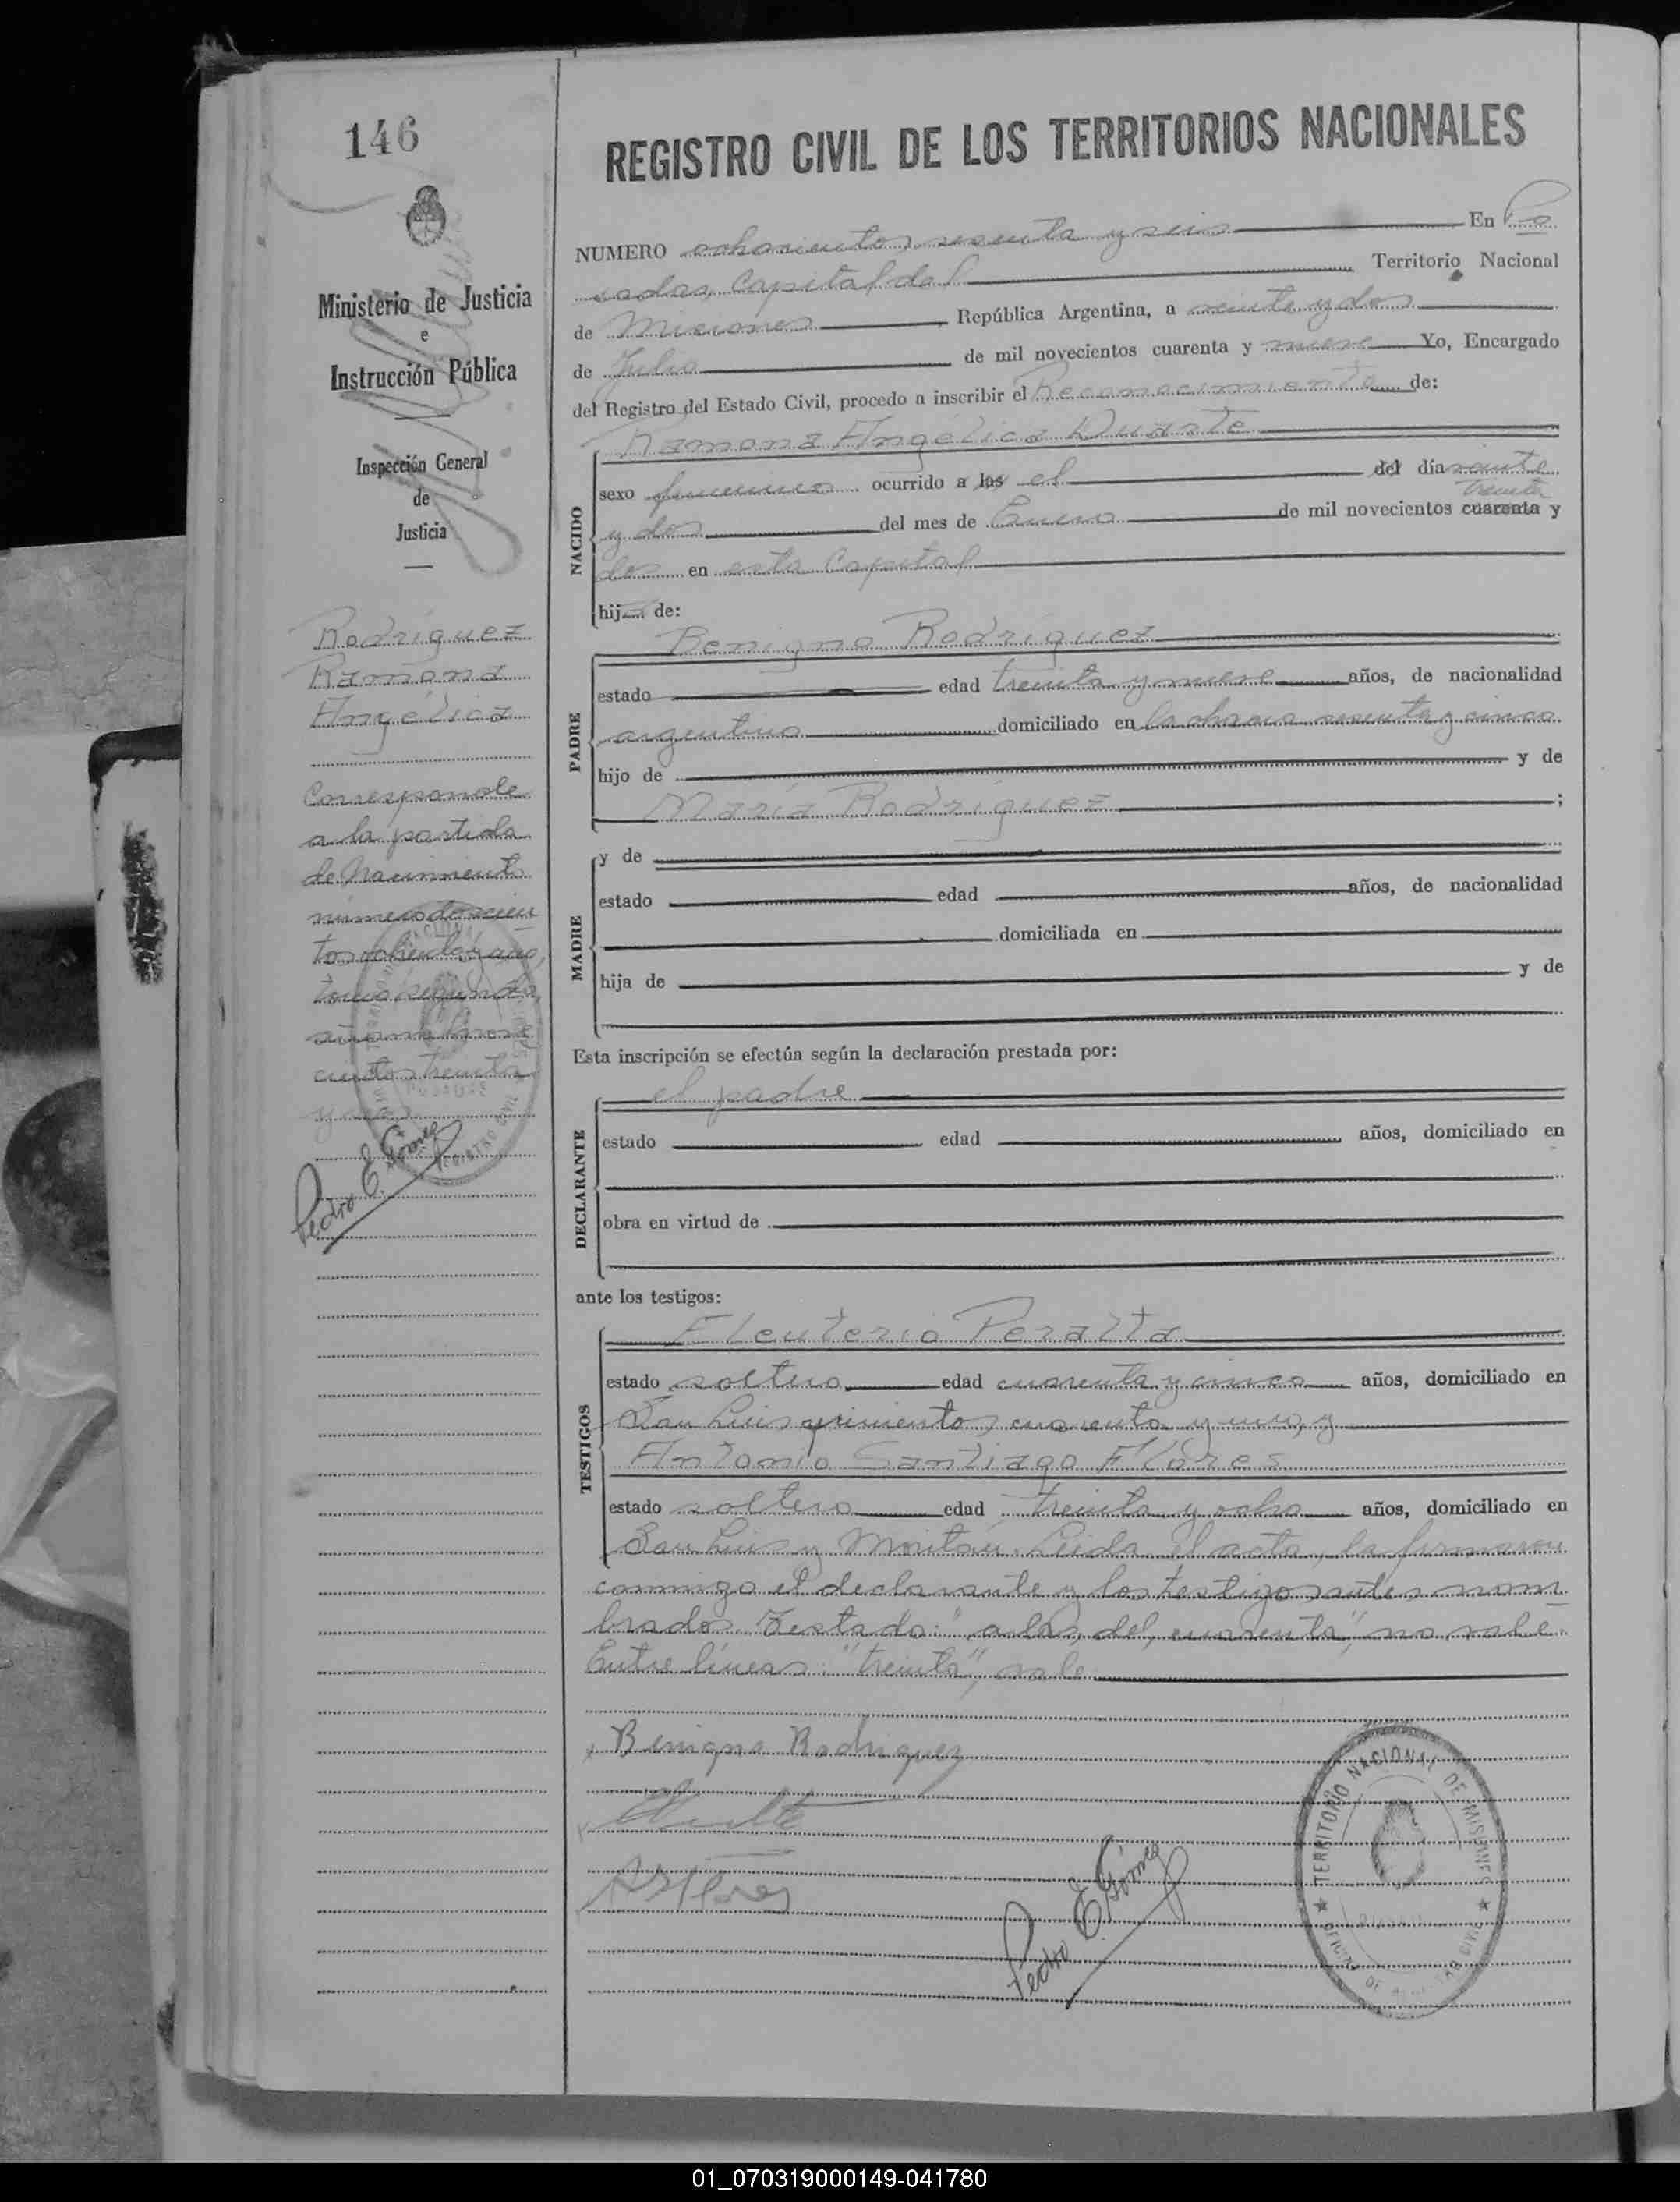 146
Ministerio de Justicia
e
Instrucción Pública
Inspección General
de
Justicia
Rodríguez
Ramona
Angélica
Corresponde
a la partida
de Nacimiento
número doscien
tos ochenta y uno,
tomo segundo,
año mil nove
cientos treinta
y dos
Pedro E. Gómez
REGISTRO CIVIL DE LOS TERRITORIOS NACIONALES
NUMERO ochocientos sesenta y seis En Po
sadas, Capital del Territorio Nacional
de Misiones República Argentina, a veinte y dos
de Julio de mil novecientos cuarenta y nueve Yo, Encargado
del Registro del Estado Civil, procedo a inscribir el Reconocimiento de:
Ramona Angélica Duarte
NACIDO
sexo femenino ocurrido a las el del día veinte
treinta
y dos del mes de Enero de mil novecientos cuarenta y
dos en esta Capital
hija de:
PADRE
Benigno Rodríguez
estado edad treinta y nueve años, de nacionalidad
argentino domiciliado en la chacra sesenta y cinco
hijo de y de
María Rodríguez ;
MADRE
y de
estado edad años, de nacionalidad
domiciliada en
hija de y de
Esta inscripción se efectúa según la declaración prestada por:
DECLARANTE
el padre
estado edad años, domiciliado en
obra en virtud de
ante los testigos:
TESTIGOS
Eleuterio Peralta
estado soltero edad cuarenta y cinco años, domiciliado en
San Luis quinientos cuarenta y uno, y
Antonio Santiago Flores
estado soltero edad treinta y ocho años, domiciliado en
San Luis y Moritán. Leida el acta, la firmaron
conmigo el declarante y los testigos antes nom
brados. Testado: "a las, del, cuarenta", no vale.
Entre líneas: "treinta", vale
Benigno Rodriguez
ASFlores
Pedro E. Gómez
TERRITORIO NACIONAL DE MISIONES
OFICINA DE REGISTRO CIVIL
01_070319000149-041780